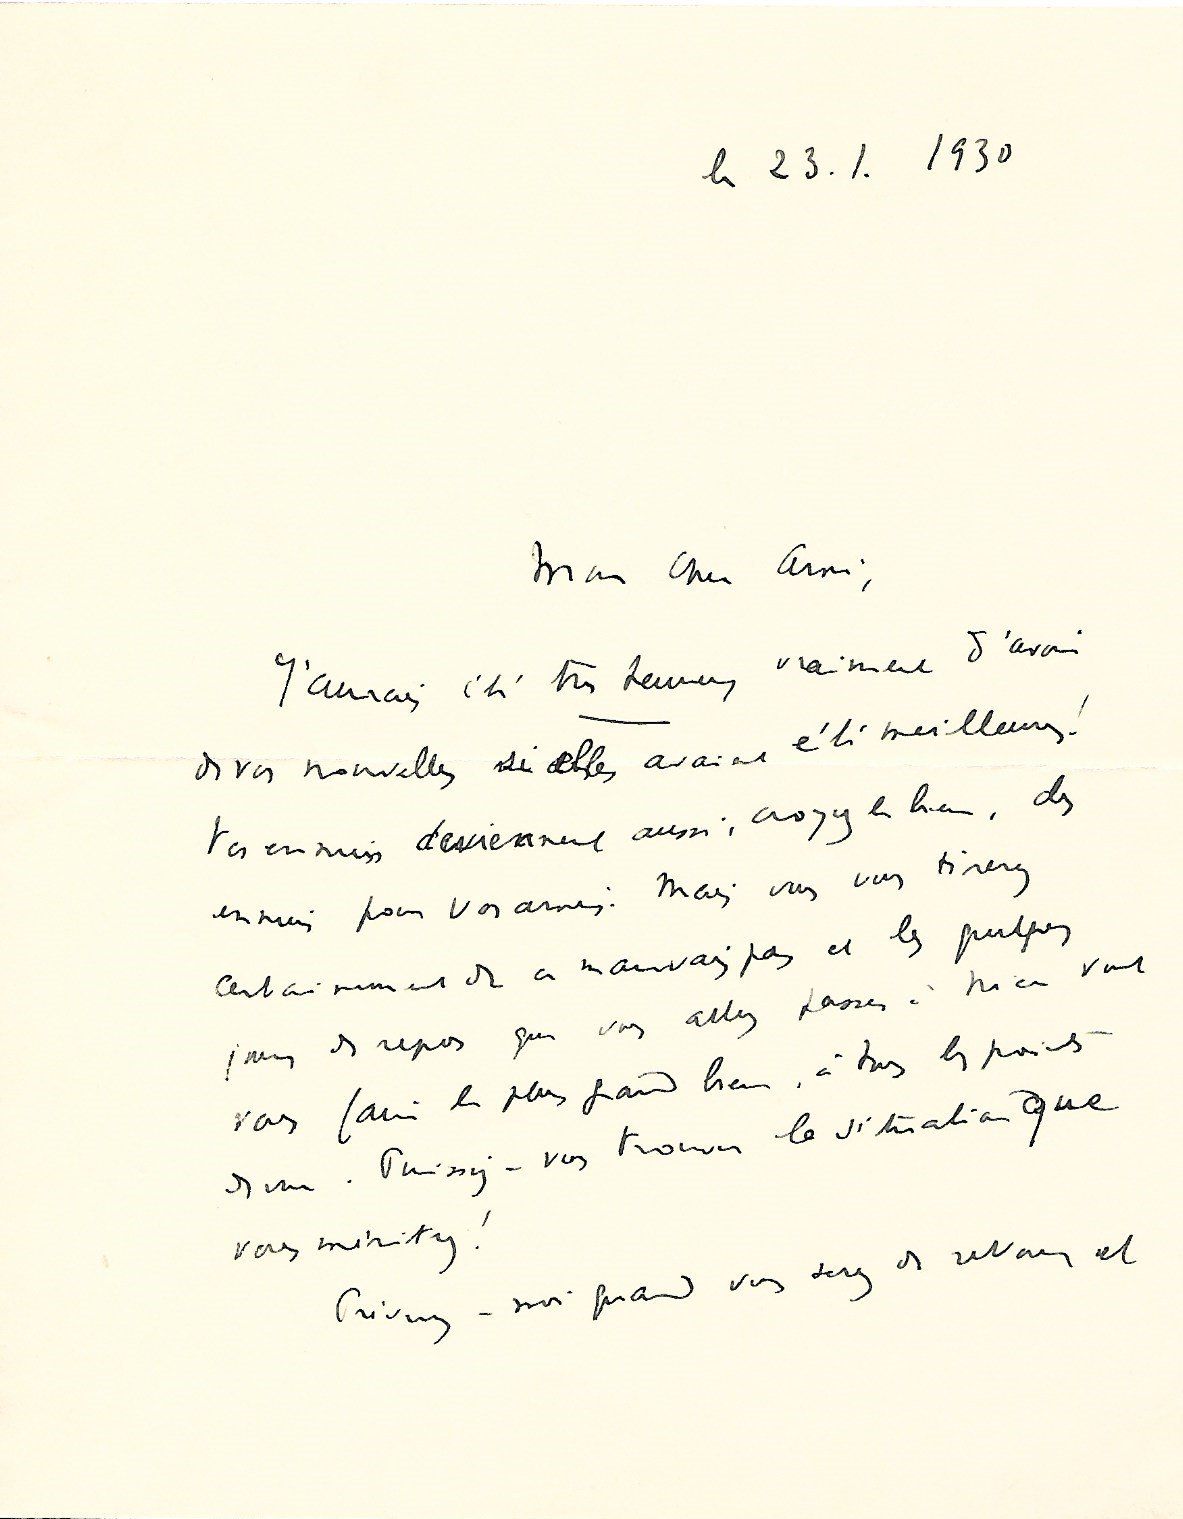 le 23.1. 1930
Mon Cher Ami,
J'aurais été très heureux vraiment d'avoir
de vos nouvelles si elles avaient été meilleures!
Vos ennuis deviennent aussi, croyez le bien, des
ennuis pour vos amis. Mais vous vous tirerez
certainement de ce mauvais pas et les quelques
jours de repos que vous allez passer à Nice vont
vous faire le plus grand bien, à tous les points
de vue. Puissiez-vous trouver la situation que
vous méritez!
Prévenez-moi quand vous serez de retour et